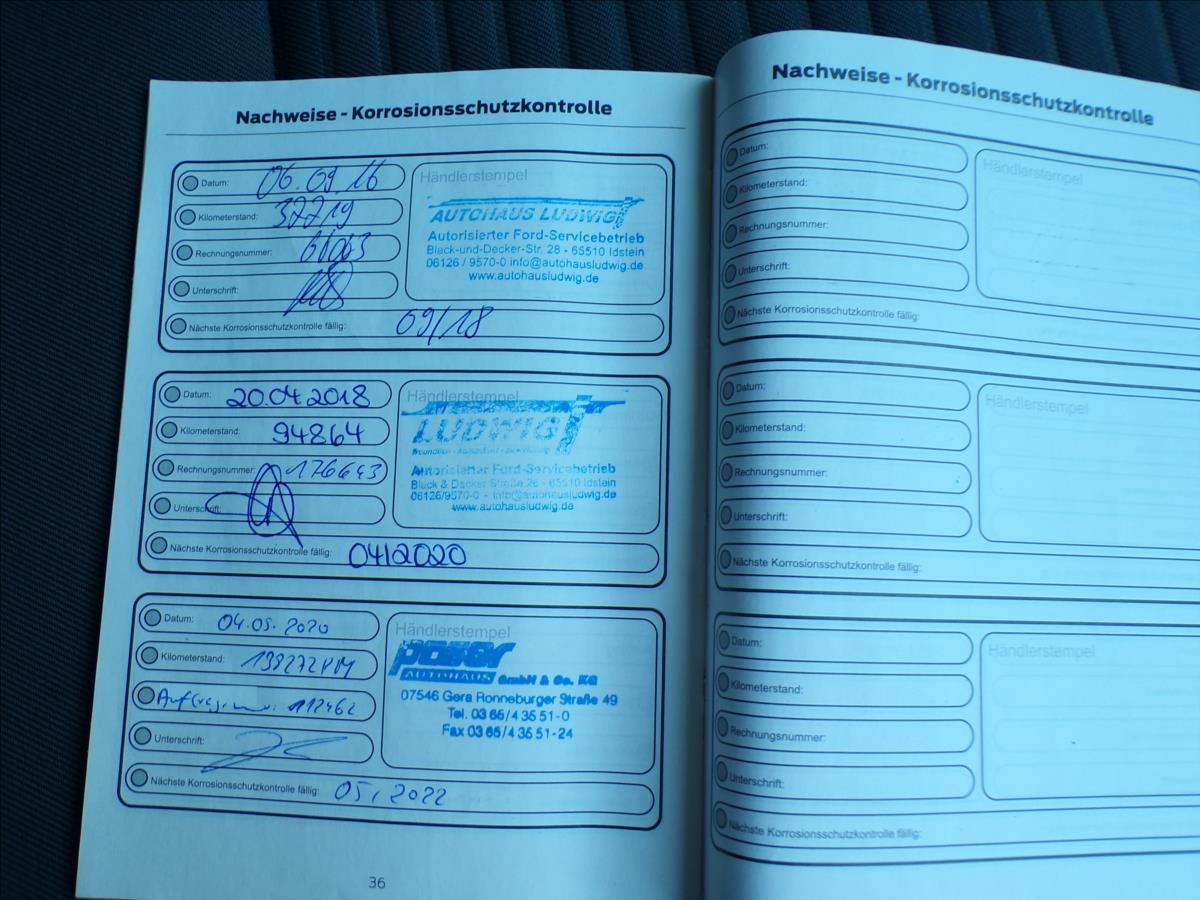 Nachweise - Korrosionsschutzkontrolle
Datum: 06.09.16
Kilometerstand: 37719
Rechnungsnummer: 61063
Unterschrift:
Händlerstempel
AUTOHAUS LUDWIG
Autorisierter Ford-Servicebetrieb
Black-und-Decker-Str. 28 - 65510 Idstein
06126 / 9570-0 info@autohausludwig.de
www.autohausludwig.de
Nächste Korrosionsschutzkontrolle fällig: 09/18
Datum: 20.04.2018
Kilometerstand: 94864
Rechnungsnummer: 176643
Unterschrift:
Händlerstempel
LUDWIG
Autorisierter Ford-Servicebetrieb
Black & Decker Straße 28 - 65510 Idstein
06126/9570-0 - info@autohausludwig.de
www.autohausludwig.de
Nächste Korrosionsschutzkontrolle fällig: 04/2020
Datum: 04.05.2020
Kilometerstand: 138272 KM
112462
Unterschrift:
Händlerstempel
AUTOHAUS GmbH & Co. KG
07546 Gera Ronneburger Straße 49
Tel. 03 65/4 35 51-0
Fax 03 65/4 35 51-24
Nächste Korrosionsschutzkontrolle fällig: 05/2022
36
Nachweise - Korrosionsschutzkontrolle
Datum:
Kilometerstand:
Rechnungsnummer:
Unterschrift:
Händlerstempel
Nächste Korrosionsschutzkontrolle fällig:
Datum:
Kilometerstand:
Rechnungsnummer:
Unterschrift:
Händlerstempel
Nächste Korrosionsschutzkontrolle fällig:
Datum:
Kilometerstand:
Rechnungsnummer:
Unterschrift:
Händlerstempel
Nächste Korrosionsschutzkontrolle fällig: